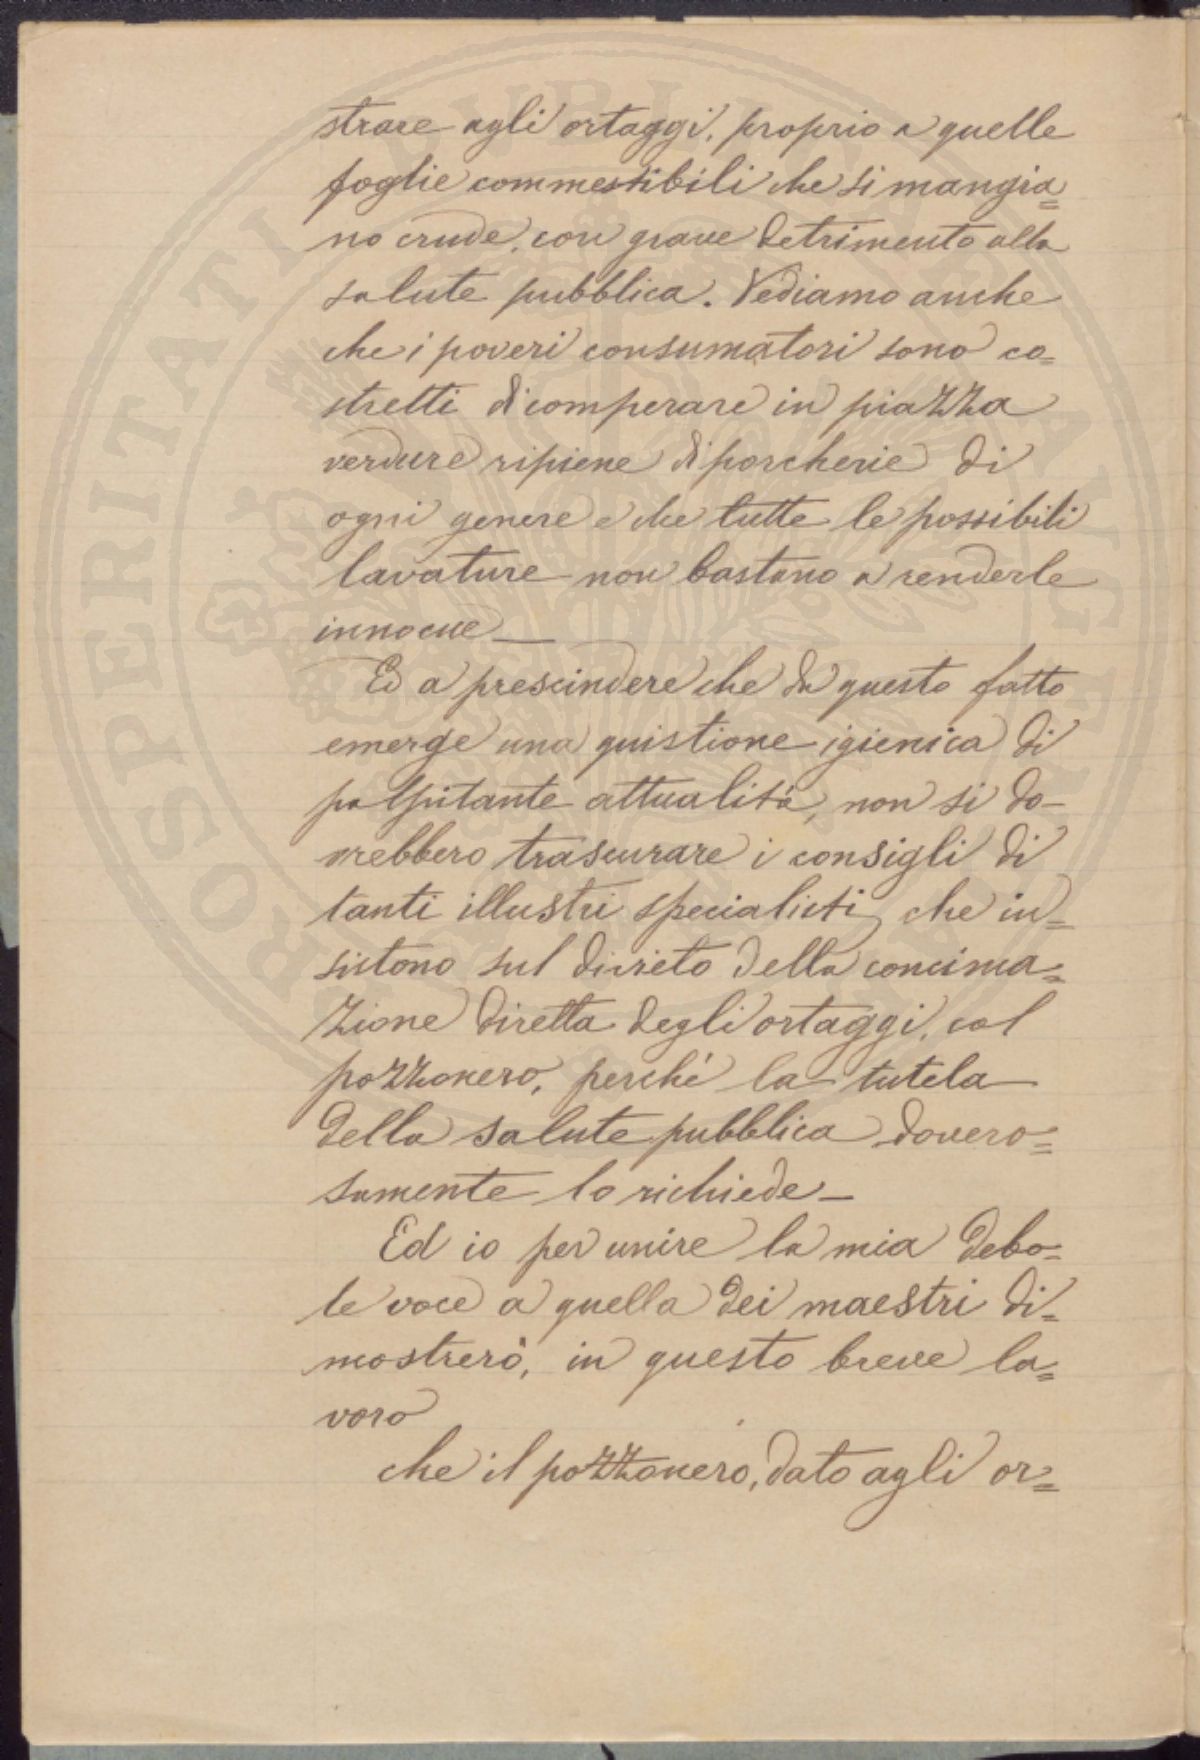 strare agli ortaggi, proprio a quelle
foglie commessibili che si mangia=
no crude, con grave detrimento alla
salute pubblica. Vediamo anche
che i poveri consumatori sono co=
stretti di comperare in piazza
verdure ripiene di porcherie di
ogni genere e che tutte le possibili
lavature non bastano a renderle
innocue—
Ed a prescindere che da questo fatto
emerge una quistione igienica di
palpitante attualità, non si do-
vrebbero trascurare i consigli di
tanti illustri specialisti, che in=
sistono sul divieto della concima=
zione diretta degli ortaggi, col
pozzonero, perché la tutela
della salute pubblica dovero=
samente lo richiede—
Ed io per unire la mia debo=
le voce a quella dei maestri di=
mostrerò, in questo breve la=
voro
che il pozzonero, dato agli or=